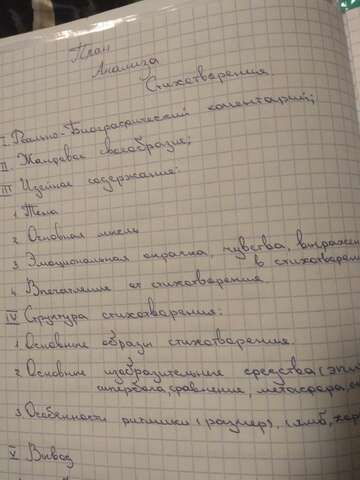 План
Анализа
Стихотварения
I. Реально-Биографический коментарий;
II. Жанровое своеобразие;
III Идейное содержание:
1. Тема
2. Основная мысль
3. Эмоциональная окраска, чувства, выражен
в стихотворен
4. Впечатление от стихотварения.
IV Структура стихотварения:
1. Основные образы стихотварения.
2. Основные изобразительные средства (эпи
гипербола, сравнение, метафора, ол
3. Особенности ритмики (размер), (ямб, хор
V Вывод